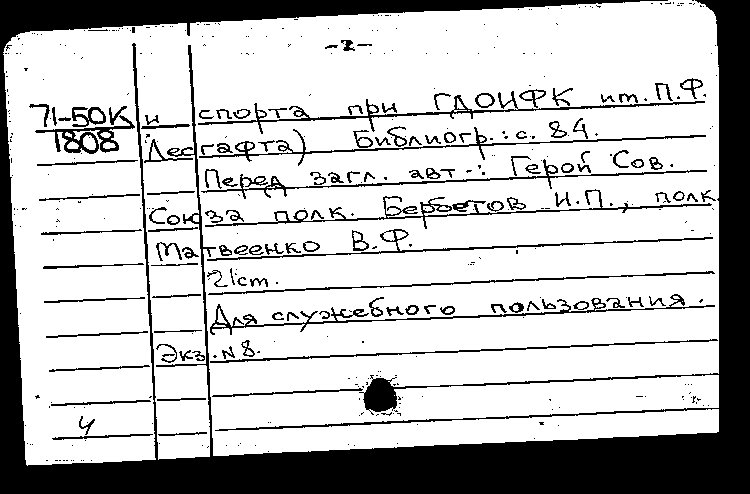 -2-
71-50К и спорта при ГДОИФК им. П.Ф.
1808 Лесгафта) Библиогр.: с. 84.
Перед загл. авт.: Герой Сов.
Союза полк. Бербетов И.П., полк
Матвеенко В.Ф.
21см.
Для служебного пользования.
Экз. N 8.
4